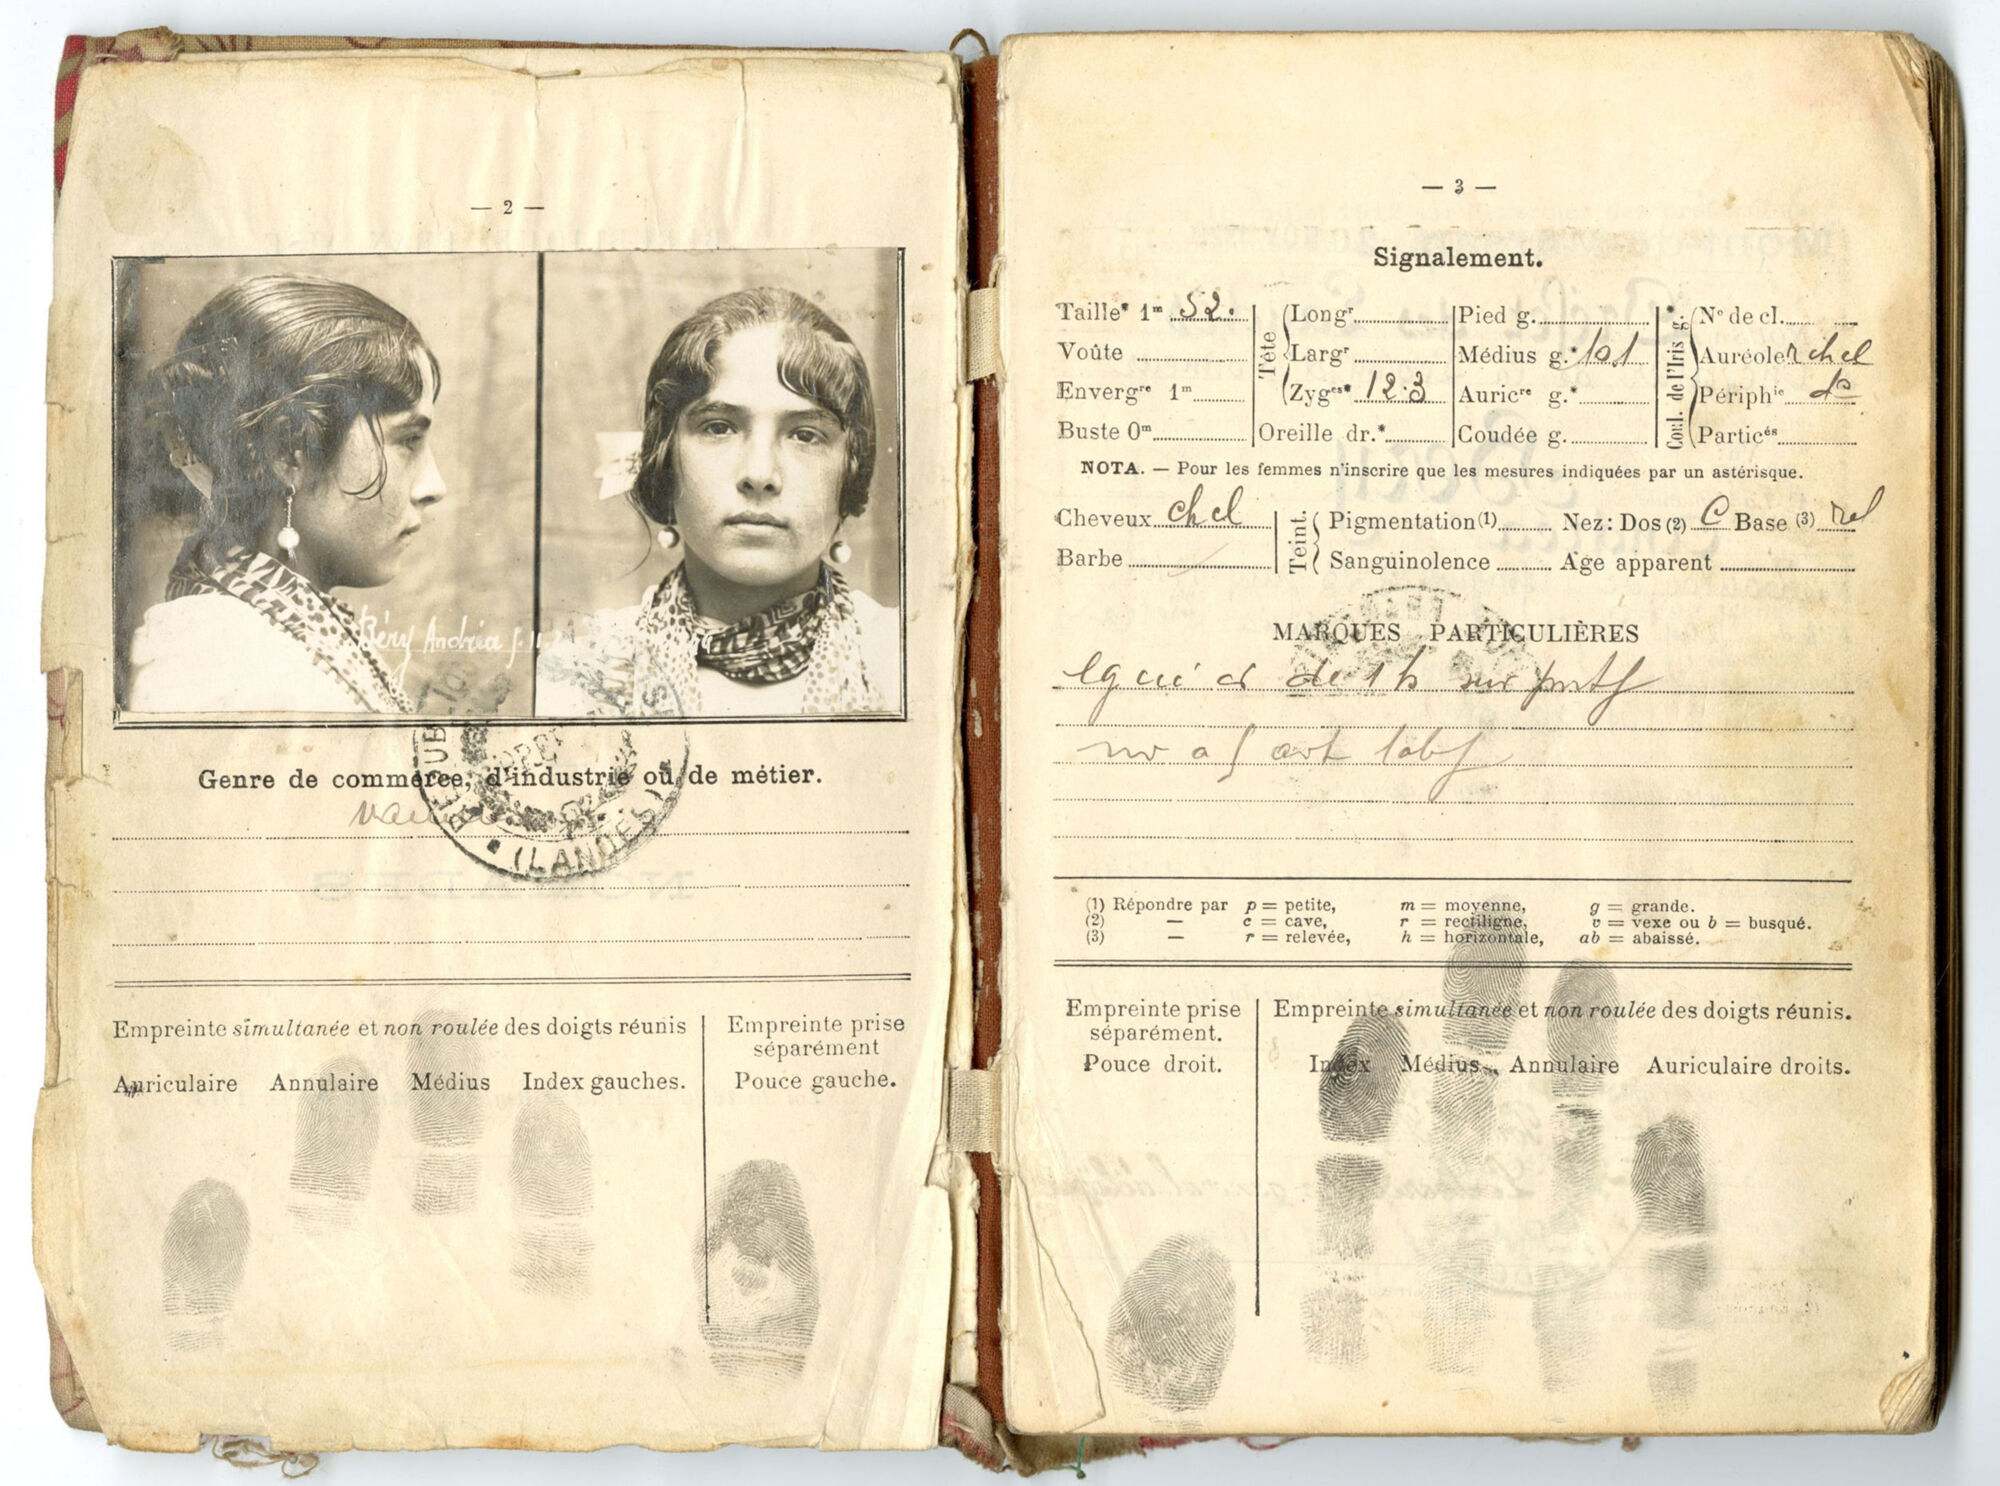 — 2 —
Béry Andréa
Genre de commerce, d'industrie ou de métier.
(LANDES)
Empreinte simultanée et non roulée des doigts réunis
Auriculaire Annulaire Médius Index gauches.
Empreinte prise
séparément
Pouce gauche.
— 3 —
Signalement.
Taille* 1m 52. Tête Longr Pied g. Coul. de l'Iris g.* No de cl.
Voûte Largr Médius g.* 101 Auréole r chcl
Envergre 1m Zygces* 12.3 Auricre g.* Périphie do
Buste 0m Oreille dr.* Coudée g. Particés
NOTA. — Pour les femmes n'inscrire que les mesures indiquées par un astérisque.
Cheveux chcl Teint. Pigmentation (1) Nez: Dos (2) C Base (3) rel
Barbe Sanguinolence Age apparent
MARQUES PARTICULIÈRES
(1) Répondre par p = petite, m = moyenne, g = grande.
(2) — c = cave, r = rectiligne, v = vexe ou b = busqué.
(3) — r = relevée, h = horizontale, ab = abaissé.
Empreinte prise
séparément.
Pouce droit.
Empreinte simultanée et non roulée des doigts réunis.
Index Médius Annulaire Auriculaire droits.